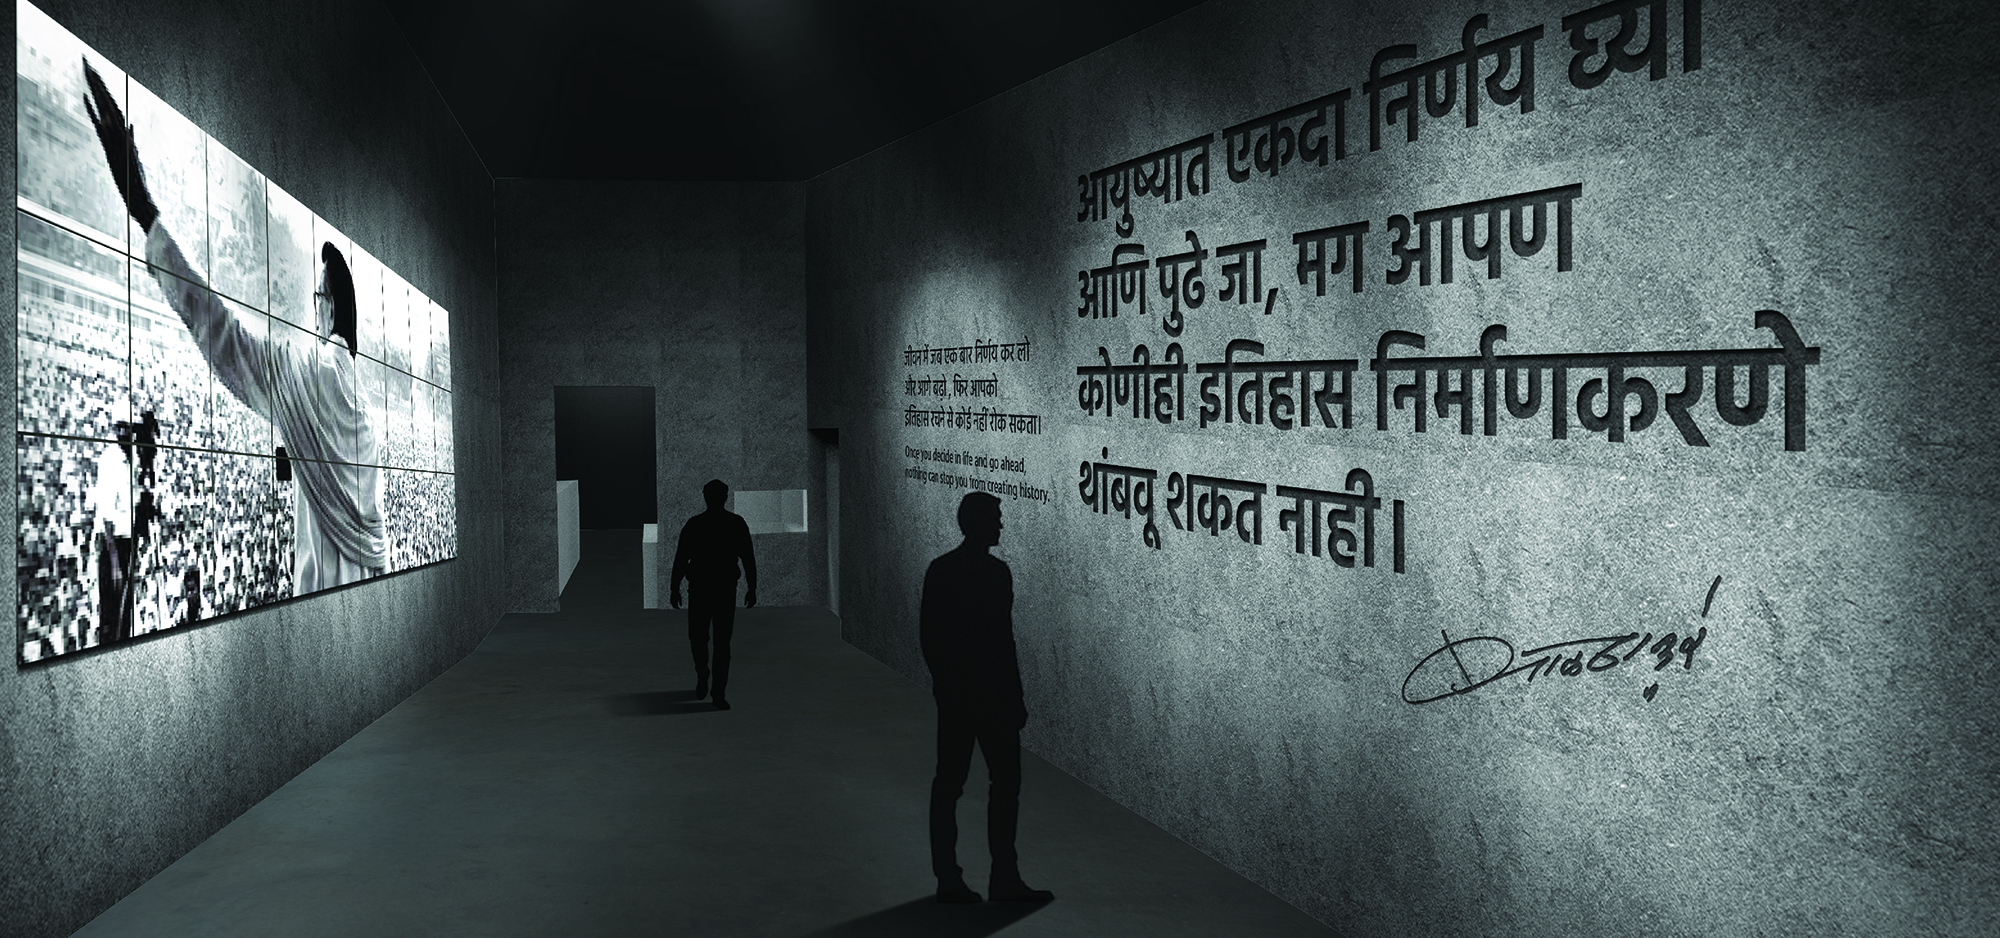 आयुष्यात एकदा निर्णय घ्या
आणि पुढे जा, मग आपण
कोणीही इतिहास निर्माणकरणे
थांबवू शकत नाही।
जीवन में जब एक बार निर्णय कर लो
और आगे बढ़ो, फिर आपको
इतिहास रचने से कोई नहीं रोक सकता।
Once you decide in life and go ahead,
nothing can stop you from creating history.